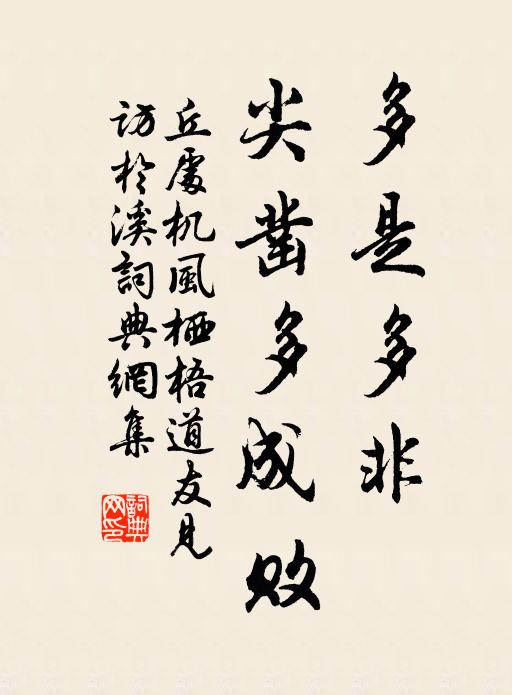 多是多非
尖凿多成败
丘處机風栖梧道友見
訪於溪詞典網集
詞典网印